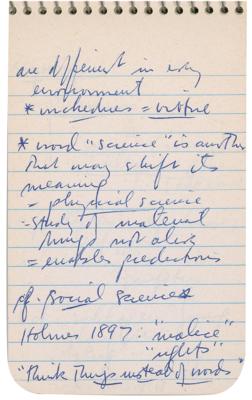 are different in every
environment
* = virtue
* word "science" is another
that may shift its
meaning
= physical science
= study of material
things not alive
= enables predictions
cf. social sciences
Holmes 1897: "malice"
"rights"
"Think Things instead of words"